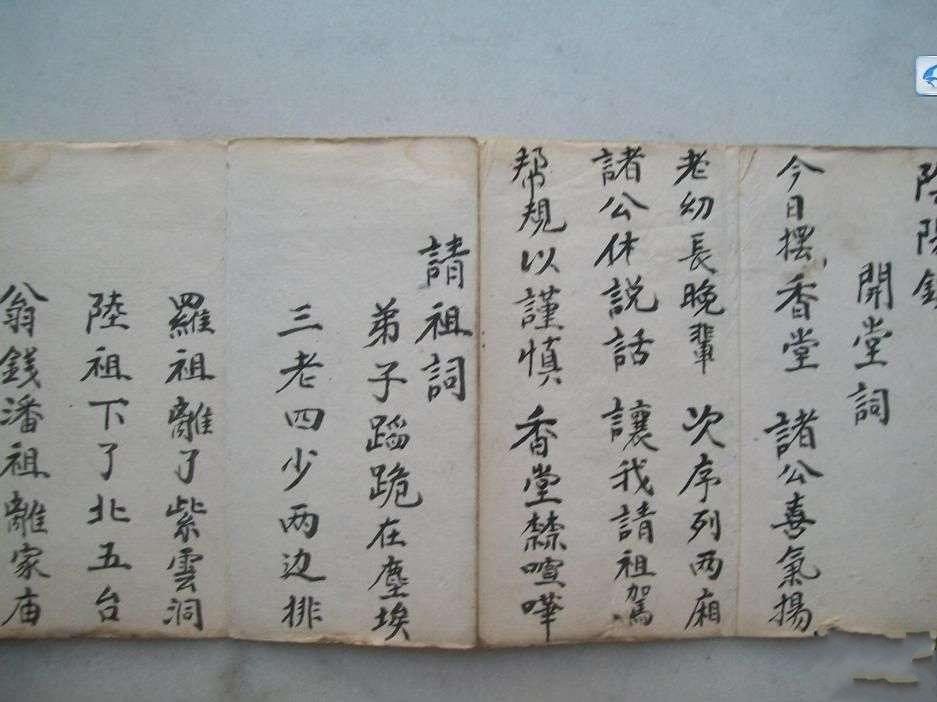 陰陽錢
開堂詞
今日擺香堂 諸公喜氣揚
老幼長晚輩 次序列两廂
諸公休説話 讓我請祖駕
帮規以謹慎 香堂禁喧嘩
請祖詞
弟子蹈跪在塵埃
三老四少两边排
羅祖離了紫雲洞
陸祖下了北五台
翁錢潘祖離家庙